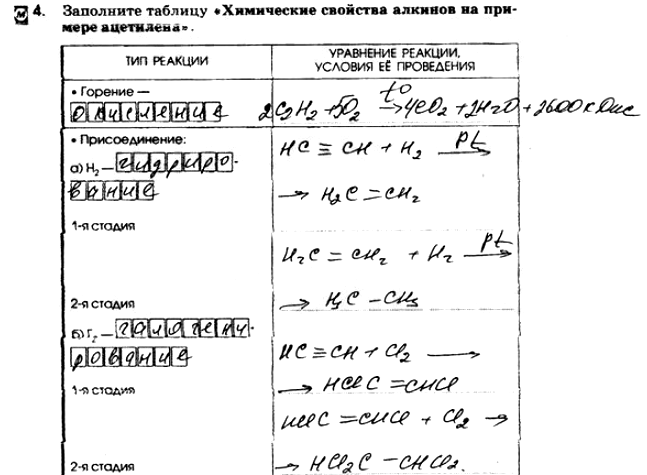 4. Заполните таблицу «Химические свойства алкинов на при-
мере ацетилена».
ТИП РЕАКЦИИ
УРАВНЕНИЕ РЕАКЦИИ,
УСЛОВИЯ ЕЁ ПРОВЕДЕНИЯ
• Горение —
окисление
2C2H2 + 5O2 t° → 4CO2 + 2H2O + 2600 кДж
• Присоединение:
а) H2 — гидриро-
вание
HC ≡ CH + H2 Pt →
→ H2C = CH2
1-я стадия
H2C = CH2 + H2 Pt →
2-я стадия
→ H3C – CH3
б) Г2 — галогени-
рование
HC ≡ CH + Cl2 →
1-я стадия
→ HClC = CHCl
HClC = CHCl + Cl2 →
2-я стадия
→ HCl2C – CHCl2.